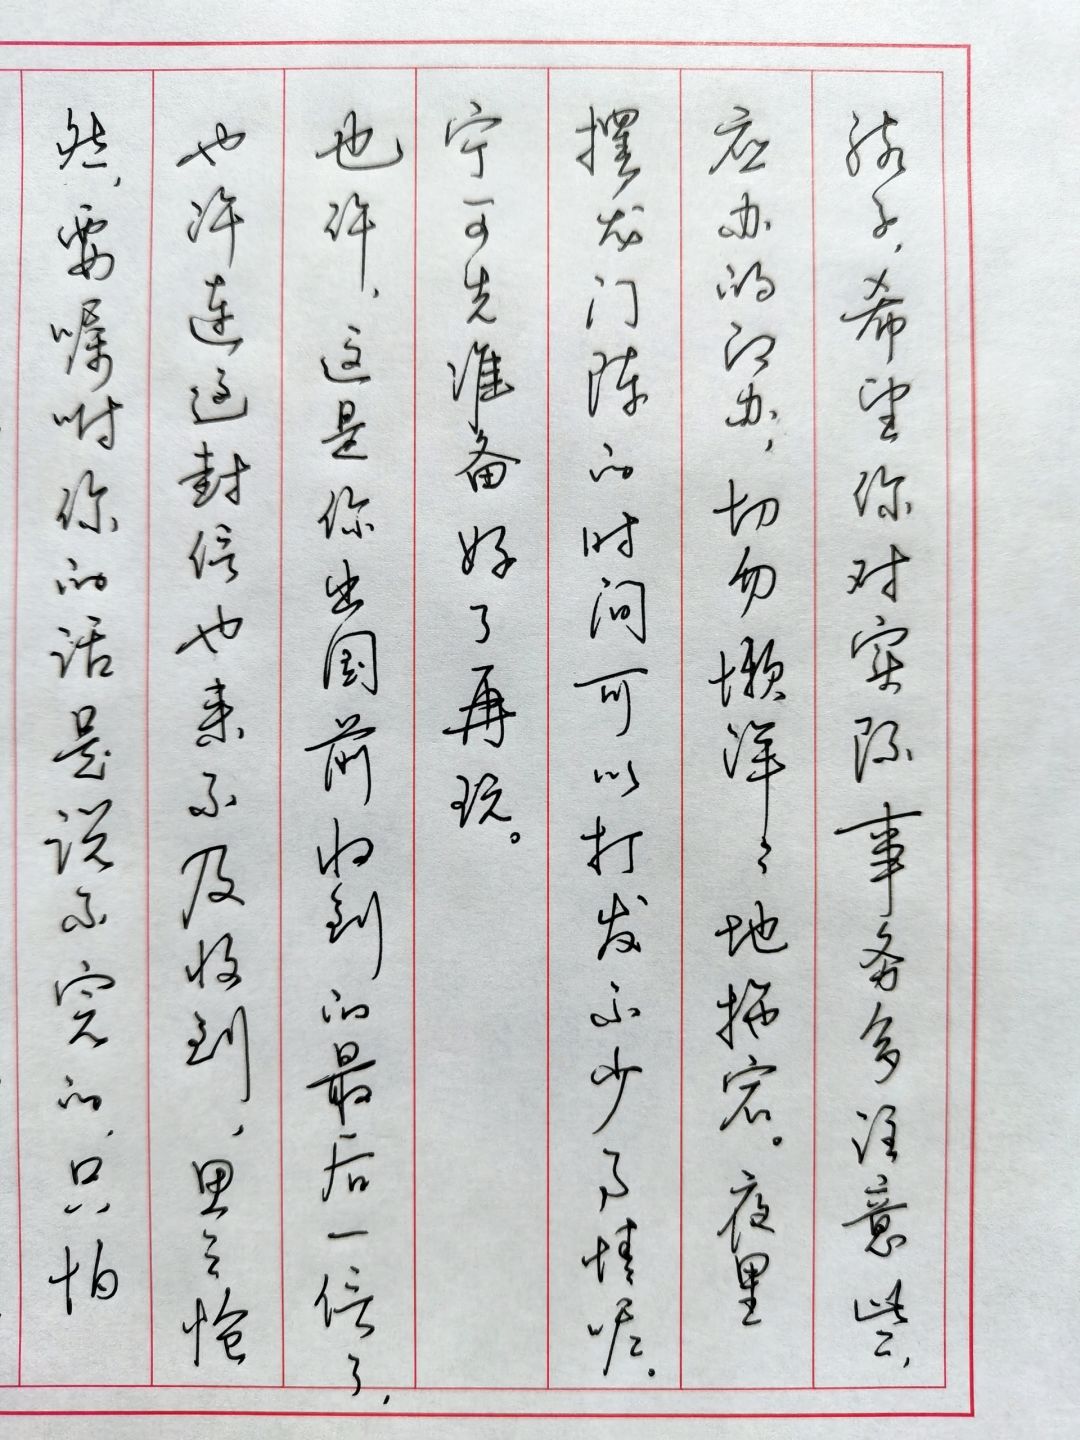 孩子，希望你对实际事务多注意些，
应办的即办，切勿懒洋洋地拖宕。夜里
摆龙门阵的时间可以打发不少事情呢。
宁可先准备好了再玩。
也许，这是你出国前收到的最后一信了，
也许连这封信也来不及收到，思之怆
然，要嘱咐你的话是说不完的，只怕